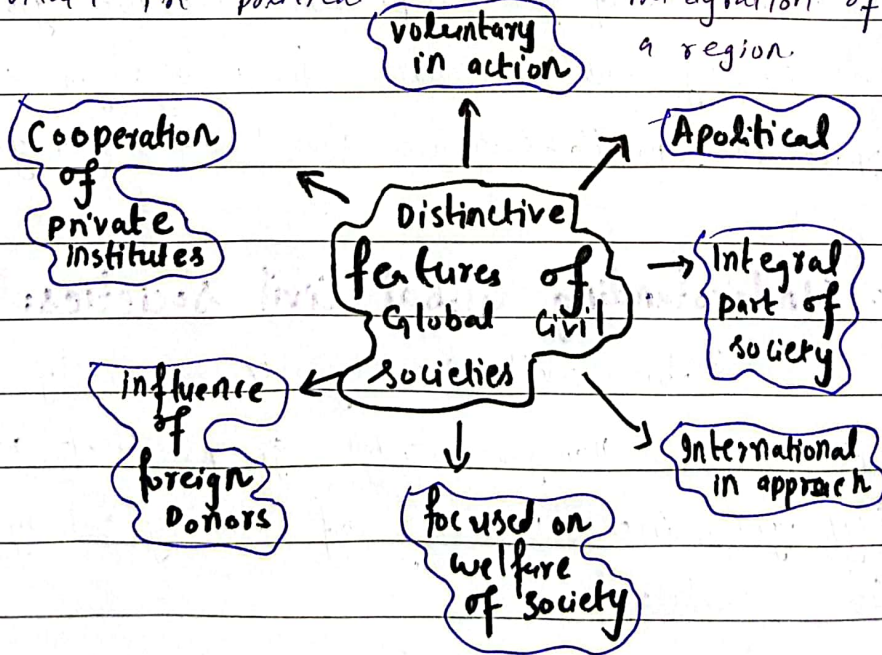 integration of
a region.
voluntary
in action
Cooperation
of
private
institutes
Apolitical
Distinctive
features of
Global Civil
societies
Integral
part of
society
influence
of
foreign
Donors
International
in approach
focused on
welfare
of society